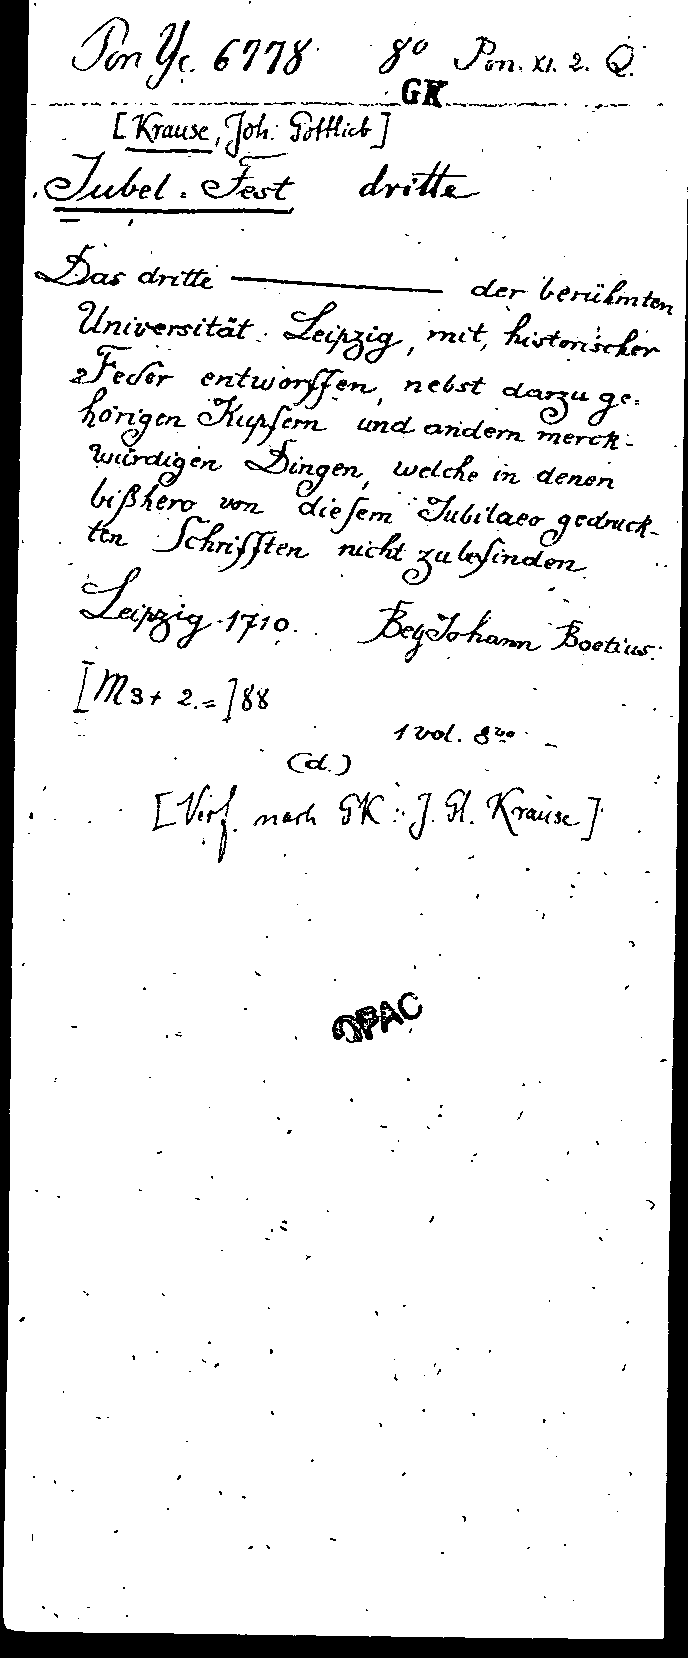 Pon Yc. 6778 8° Pon. XI. 2. Q.
GK
[Krause, Joh. Gottlieb]
Jubel-Fest dritte
Das dritte ——— der berühmten
Universität Leipzig, mit historischer
Feder entworffen, nebst darzu ge-
hörigen Kupfern und andern merck-
würdigen Dingen, welche in denen
bißhero von diesem Jubilaeo gedruck-
ten Schrifften nicht zu befinden
Leipzig 1710. Bey Johann Boetius.
[M3+ 2.=]88
1 vol. 8vo
(d.)
[Verf. nach GK: J. Gl. Krause]
OPAC